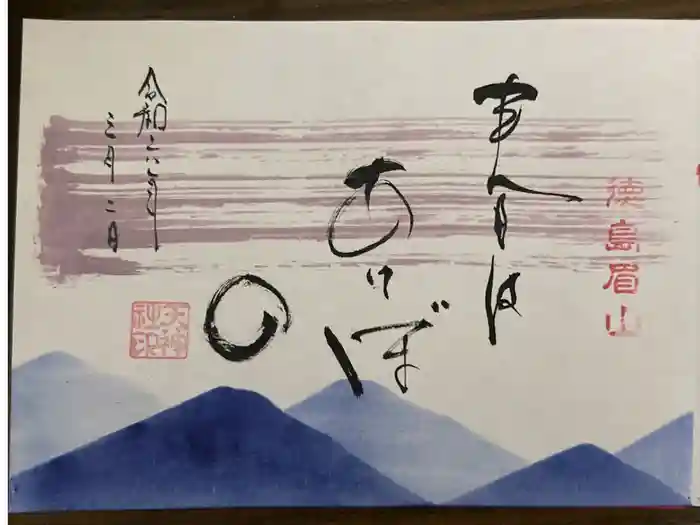 徳島眉山
春は
あけぼ
の
令和六年
三月二日
天神社印